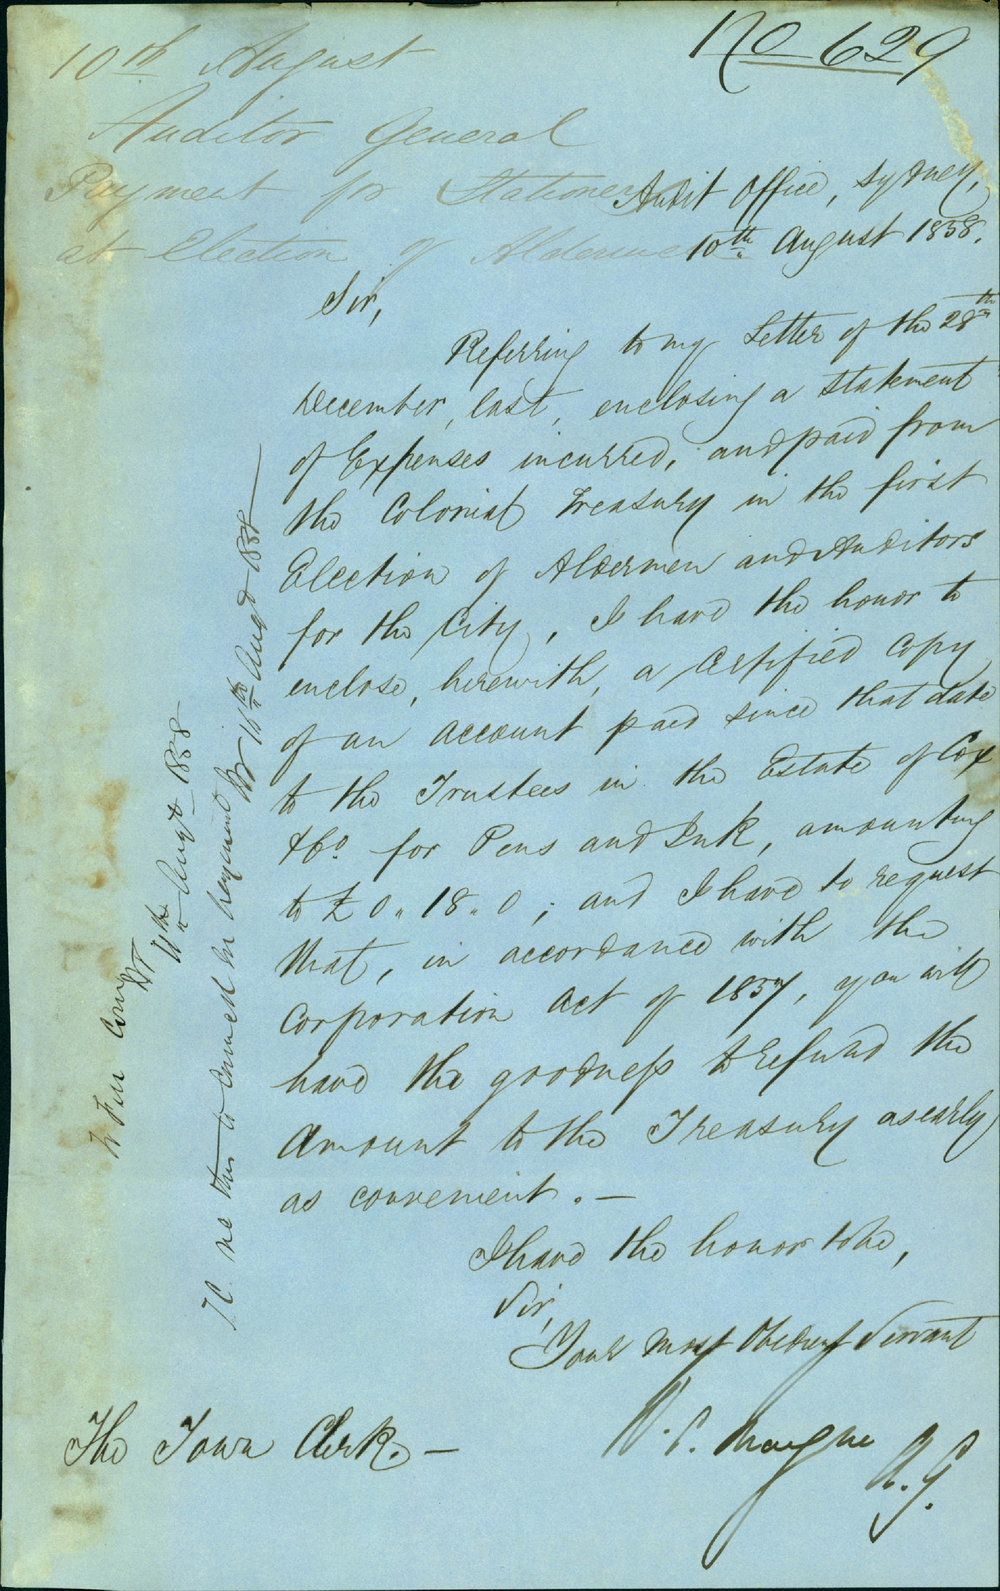 No 629
10th August
Auditor General
Payment for Stationery
at Election of Aldermen
Audit Office, Sydney,
10th August 1858.
Sir,
Referring to my Letter of the 28th
December, last, enclosing a statement
of Expenses incurred, and paid from
the Colonial Treasury in the first
Election of Aldermen and Auditors
for the City, I have the honor to
enclose, herewith, a Certified Copy
of an account paid since that date
to the Trustees in the Estate of Cox
& Co. for Pens and Ink, amounting
to £ 0 " 18 " 0 ; and I have to request
that, in accordance with the
Corporation Act of 1857, you will
have the goodness to refund the
Amount to the Treasury as early
as convenient. —
I have the honor to be,
Sir,
Your most Obedient Servant
W. C. Mayne
A. G.
The Town Clerk. —
Fin Com
11th Augt 1858
16th Augt 1858